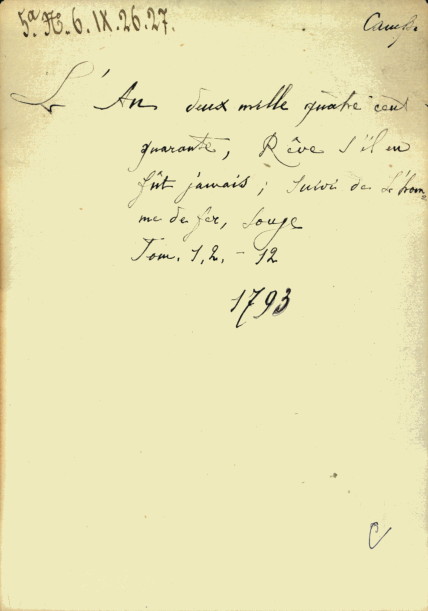 5ª H. 6. IX. 26. 27.
Camp.
L'An deux mille quatre cent
quarante, Rêve s'il en
fût jamais; suivi de L'hom=
me de fer, songe
Tom. 1, 2. - 12
1793
C